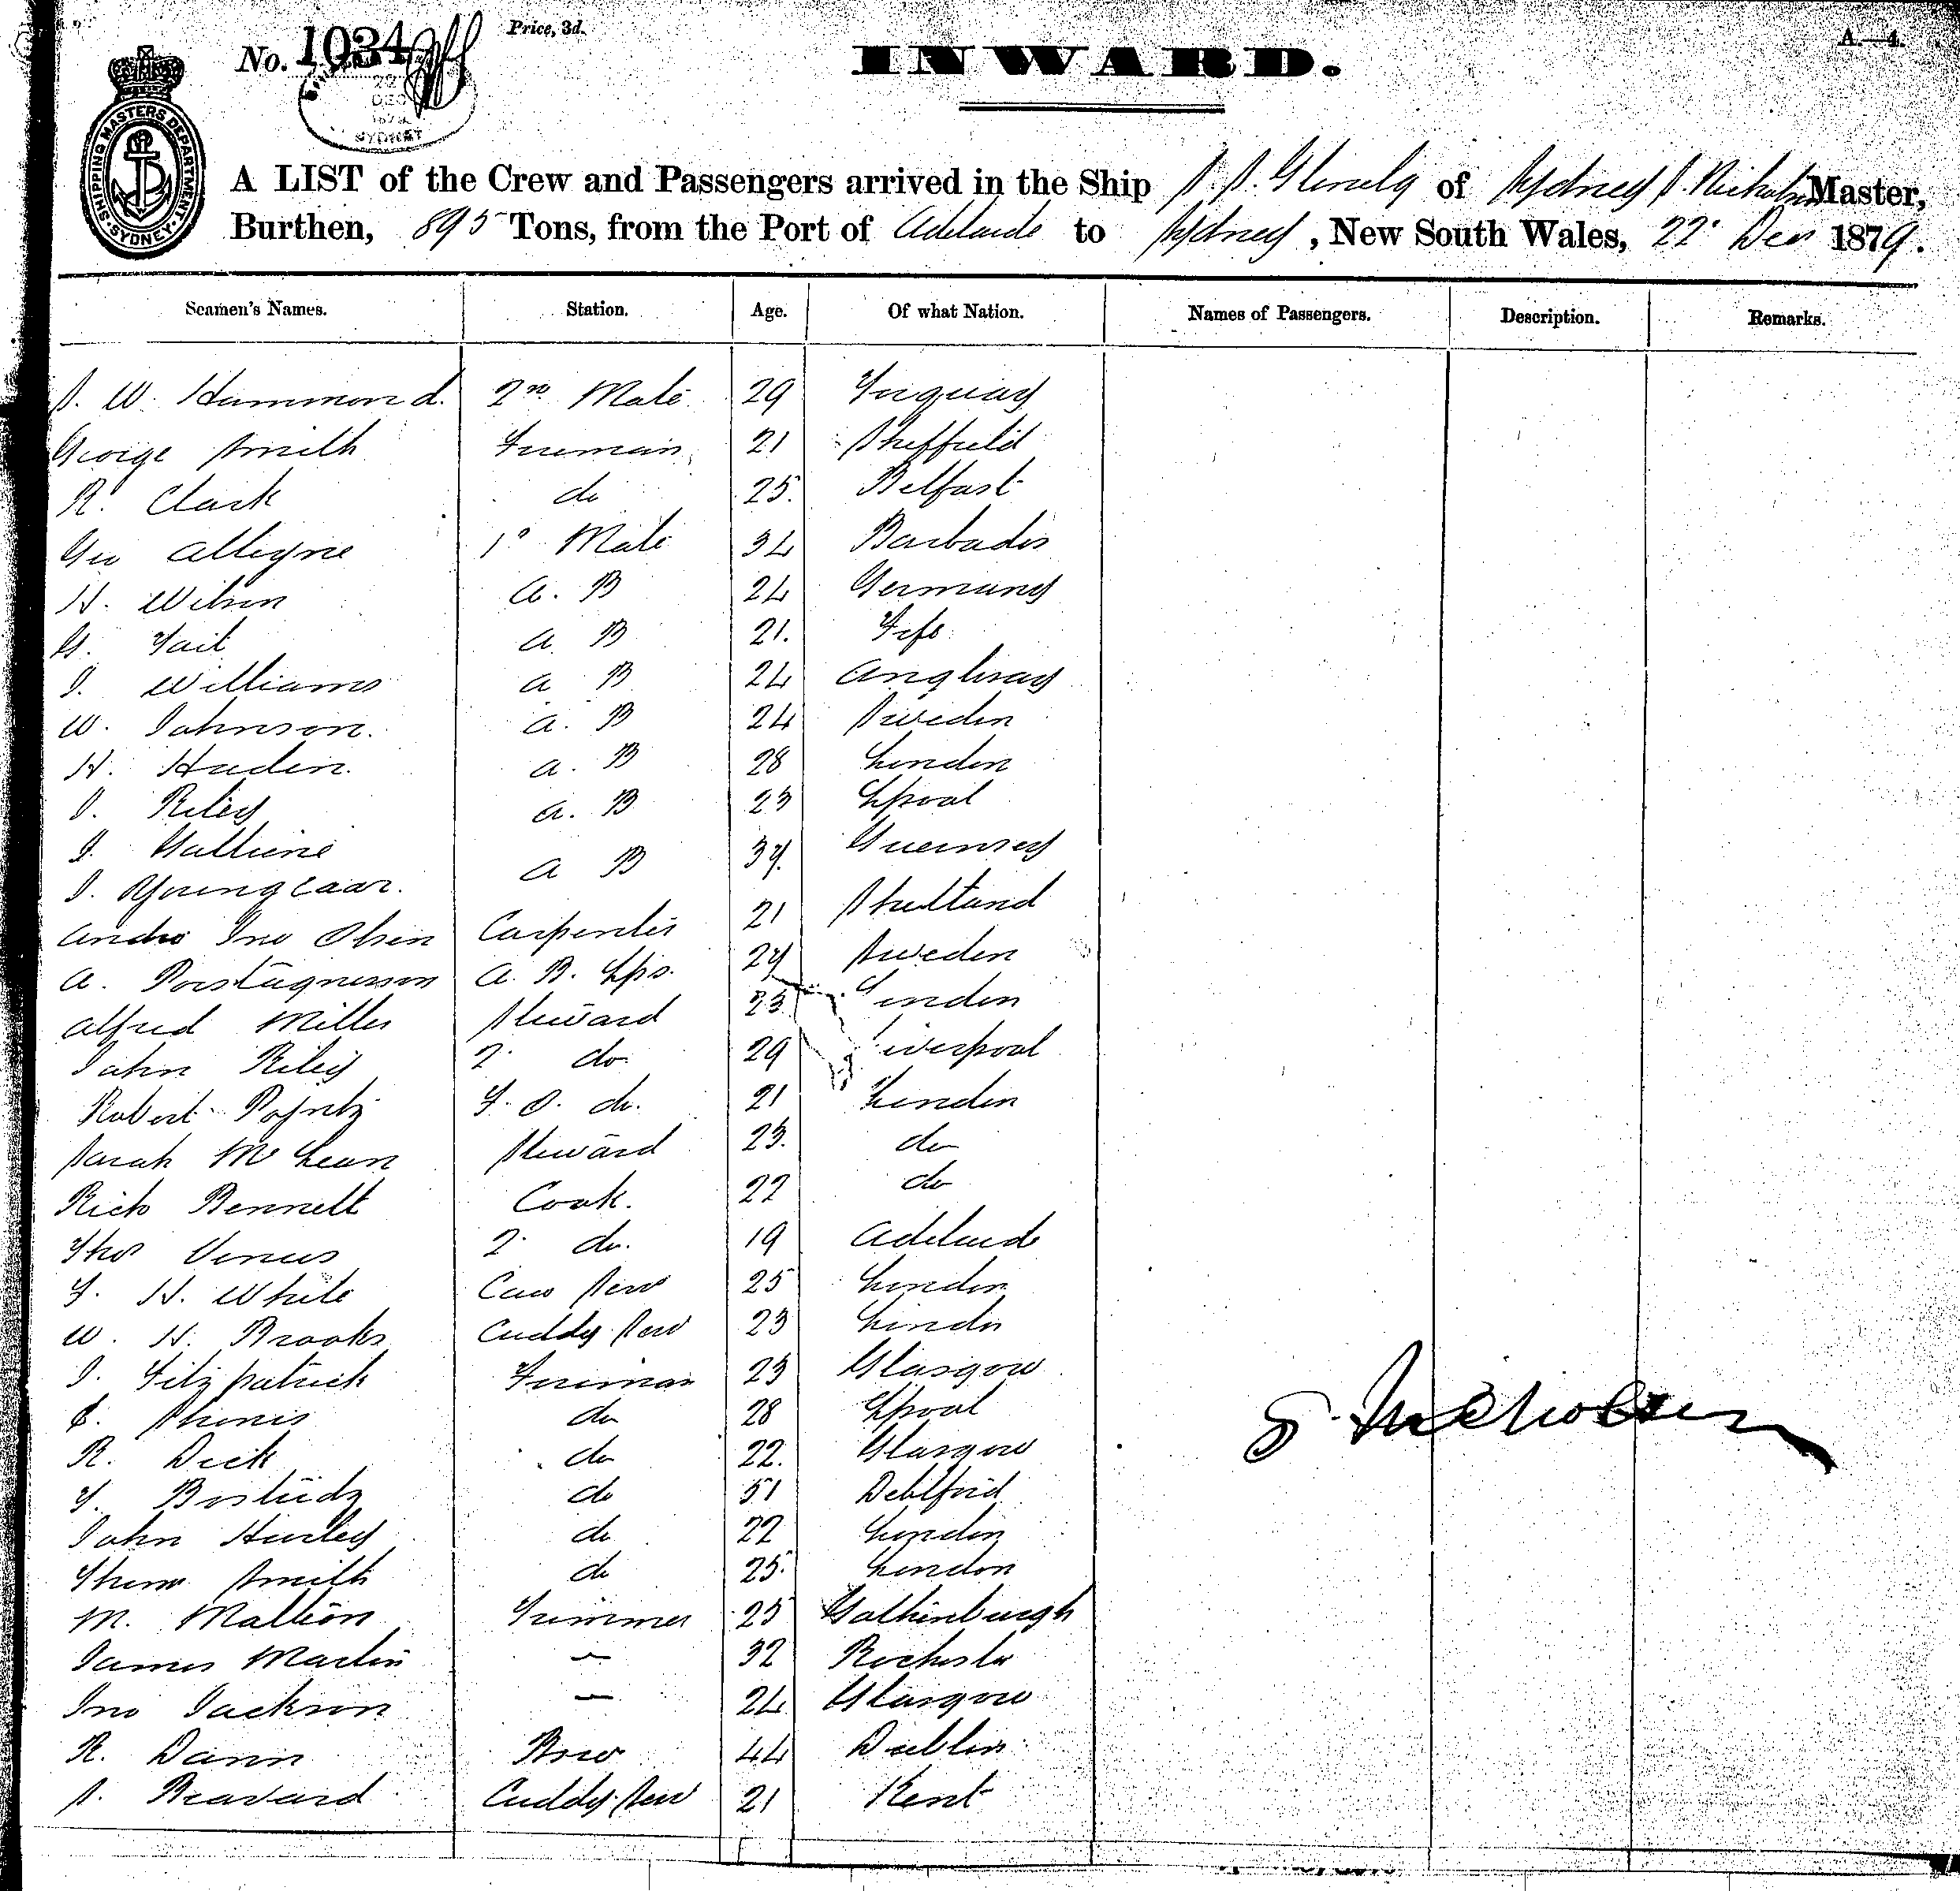 No. 1034
Price, 3d.
INWARD.
A.—4.
SHIPPING MASTERS DEPARTMENT SYDNEY
22 DEC 1879 SYDNEY
A LIST of the Crew and Passengers arrived in the Ship S.S. of Sydney S. Nicholson Master,
Burthen, 895 Tons, from the Port of Adelaide to Sydney, New South Wales, 22 Dec 1879.
Seamen's Names. Station. Age. Of what Nation. Names of Passengers. Description. Remarks.
S. W. Hammond. 2nd Mate 29 Torquay
George Smith Fireman 21 Sheffield
R. Clark do 25 Belfast
Geo Alleyne 1o Mate 34 Barbados
H. Wilson A. B 24 Germany
G. Tait A. B 21. Fife
J. Williams A B 24 Anglesay
W. Johnson. A. B 24 Sweden
H. Haden. A. B 28 London
J. Riley A. B 23 Lpool
J. A B 37. Guernsey
J. Youngclaar.
Andw Jno Olsen Carpenter 21 Shetland
A. A. B. Lps. 27 Sweden
Alfred Miller Steward 23 London
John Riley 2 do 29 Liverpool
Robert Poyntz F. S. do. 21 London
Sarah McLean Steward 23. do
Rich Bennett Cook. 22 do
Thos Venus 2 do. 19 Adelaide
F. H. White 25 London
W. H. Brooks Cuddy Serv 23 London
J. Fitzpatrick Fireman 23 Glasgow
do 28 Lpool
R. Dick do 22. Glasgow
do 51 Deptford
John Hurley do 22 London
Thom Smith do 25. London
M. Trimmer 25 Gothenburgh
James Martin — 32 Rochester
Jno Jackson — 24 Glasgow
R. Dann 44 Dublin
S. Cuddy Serv 21 Kent
S. Nicholson